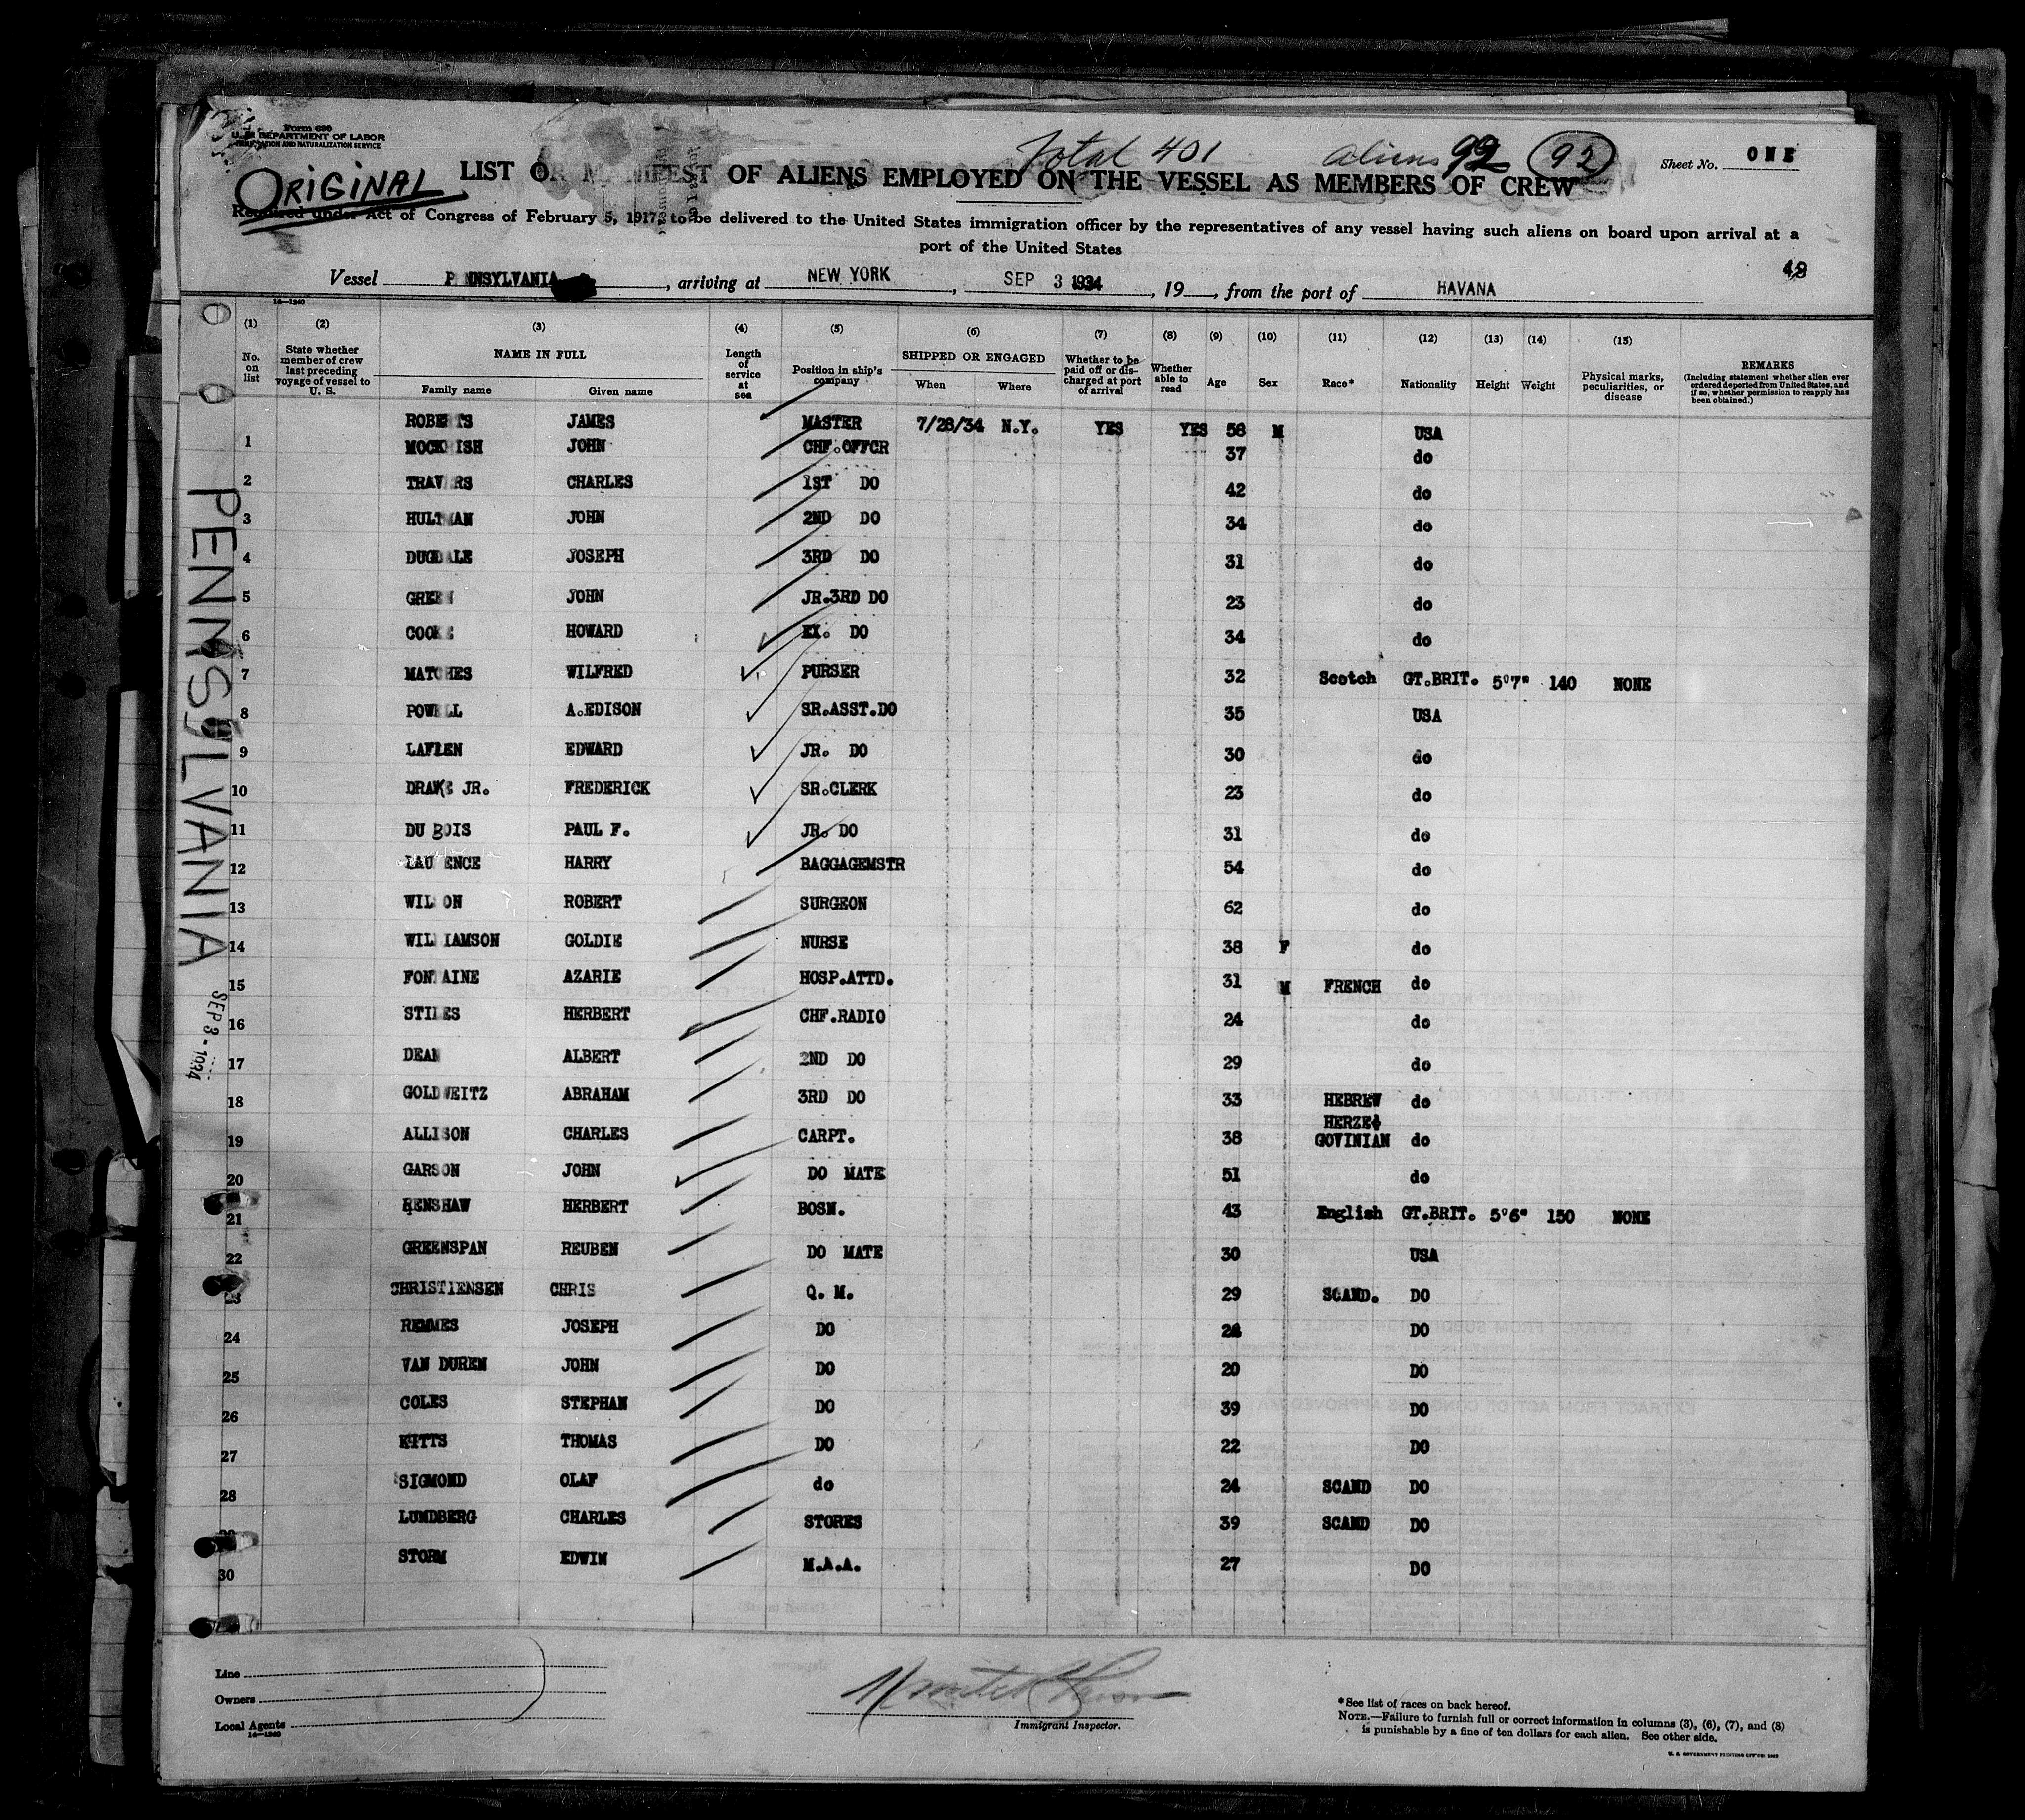 Form 680
U. S. DEPARTMENT OF LABOR
IMMIGRATION AND NATURALIZATION SERVICE
ORIGINAL
Total 401 Aliens 92 92
Sheet No. ONE
LIST OR MANIFEST OF ALIENS EMPLOYED ON THE VESSEL AS MEMBERS OF CREW
Required under Act of Congress of February 5, 1917, to be delivered to the United States immigration officer by the representatives of any vessel having such aliens on board upon arrival at a
port of the United States
Vessel PENNSYLVANIA, arriving at NEW YORK, SEP 3 1934, 19, from the port of HAVANA
14—1240
(1) (2) (3) (4) (5) (6) (7) (8) (9) (10) (11) (12) (13) (14) (15)
No. on list
State whether member of crew last preceding voyage of vessel to U. S.
NAME IN FULL
Family name Given name
Length of service at sea
Position in ship's company
SHIPPED OR ENGAGED
When Where
Whether to be paid off or discharged at port of arrival
Whether able to read
Age
Sex
Race*
Nationality
Height
Weight
Physical marks, peculiarities, or disease
REMARKS
(Including statement whether alien ever ordered deported from United States, and if so, whether permission to reapply has been obtained.)
ROBERTS JAMES MASTER 7/28/34 N.Y. YES YES 58 M USA
1 MOCKRISH JOHN CHF.OFFCR 37 do
2 TRAVERS CHARLES 1ST DO 42 do
3 HULTMAN JOHN 2ND DO 34 do
4 DUGDALE JOSEPH 3RD DO 31 do
5 GREEN JOHN JR.3RD DO 23 do
6 COOKE HOWARD EX. DO 34 do
7 MATCHES WILFRED PURSER 32 Scotch GT.BRIT. 5'7" 140 NONE
8 POWELL A.EDISON SR.ASST.DO 35 USA
9 LAFLEN EDWARD JR. DO 30 do
10 DRAKE JR. FREDERICK SR.CLERK 23 do
11 DU BOIS PAUL F. JR. DO 31 do
12 LAURENCE HARRY BAGGAGEMSTR 54 do
13 WILSON ROBERT SURGEON 62 do
14 WILLIAMSON GOLDIE NURSE 38 F do
15 FONTAINE AZARIE HOSP.ATTD. 31 M FRENCH do
16 STILES HERBERT CHF.RADIO 24 do
17 DEAN ALBERT 2ND DO 29 do
18 GOLDWEITZ ABRAHAM 3RD DO 33 HEBREW do
19 ALLISON CHARLES CARPT. 38 HERZEGOVINIAN do
20 GARSON JOHN DO MATE 51 do
21 RENSHAW HERBERT BOSN. 43 English GT.BRIT. 5'6" 150 NONE
22 GREENSPAN REUBEN DO MATE 30 USA
23 CHRISTIENSEN CHRIS Q. M. 29 SCAND. DO
24 REMMES JOSEPH DO DO
25 VAN DUREN JOHN DO 20 DO
26 COLES STEPHAN DO 39 DO
27 KITTS THOMAS DO 22 DO
28 SIGMOND OLAF do 24 SCAND DO
29 LUNDBERG CHARLES STORES 39 SCAND DO
30 STORM EDWIN M.A.A. 27 DO
PENNSYLVANIA
SEP 3 - 1934
Line
Owners
Local Agents
14—1240
Immigrant Inspector.
*See list of races on back hereof.
NOTE.—Failure to furnish full or correct information in columns (3), (6), (7), and (8)
is punishable by a fine of ten dollars for each alien. See other side.